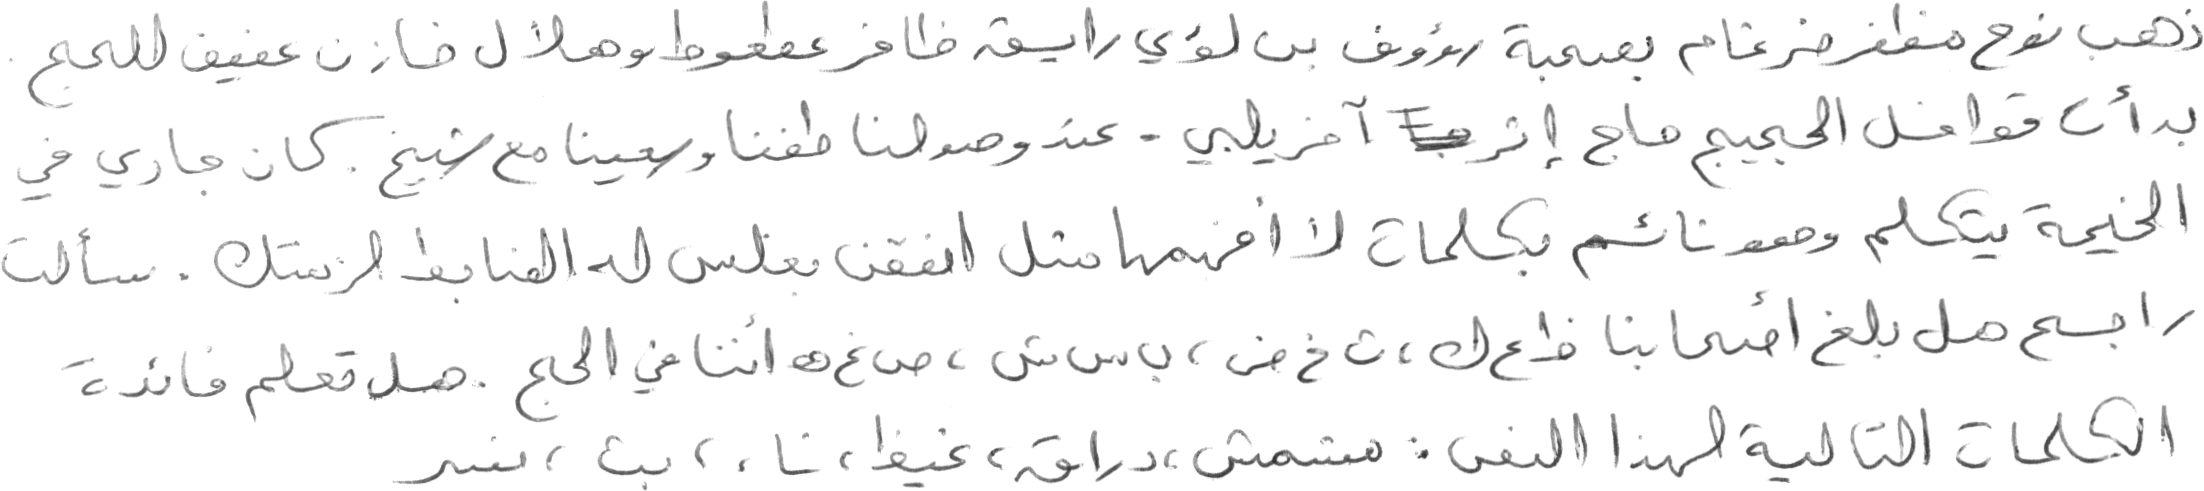 ذهب نوح مظفر ضرغام بصحبة رؤوف بن لؤي رايسقه ظافر عطعوط وهلال خازن عفيف للحج .
بدأت قوافل الحجيج ماج إثر آخر يلبي . عند وصولنا طفنا وسعينا مع شيخ . كان جاري في
الخيمة يتكلم وهو نائم بكلمات لا أفهمها مثل انفقن بغلس له الضابط لزمتك . سألت
راجح هل بلغ أصحابنا ظ ع ك ، ث خ ض ، ب س ش ، ص غ ه أننا في الحج . هل تعلم فائدة
الكلمات التالية لهذا النص : مشمش ، دراقه ، غيظ ، شاء ، بث ، نسر